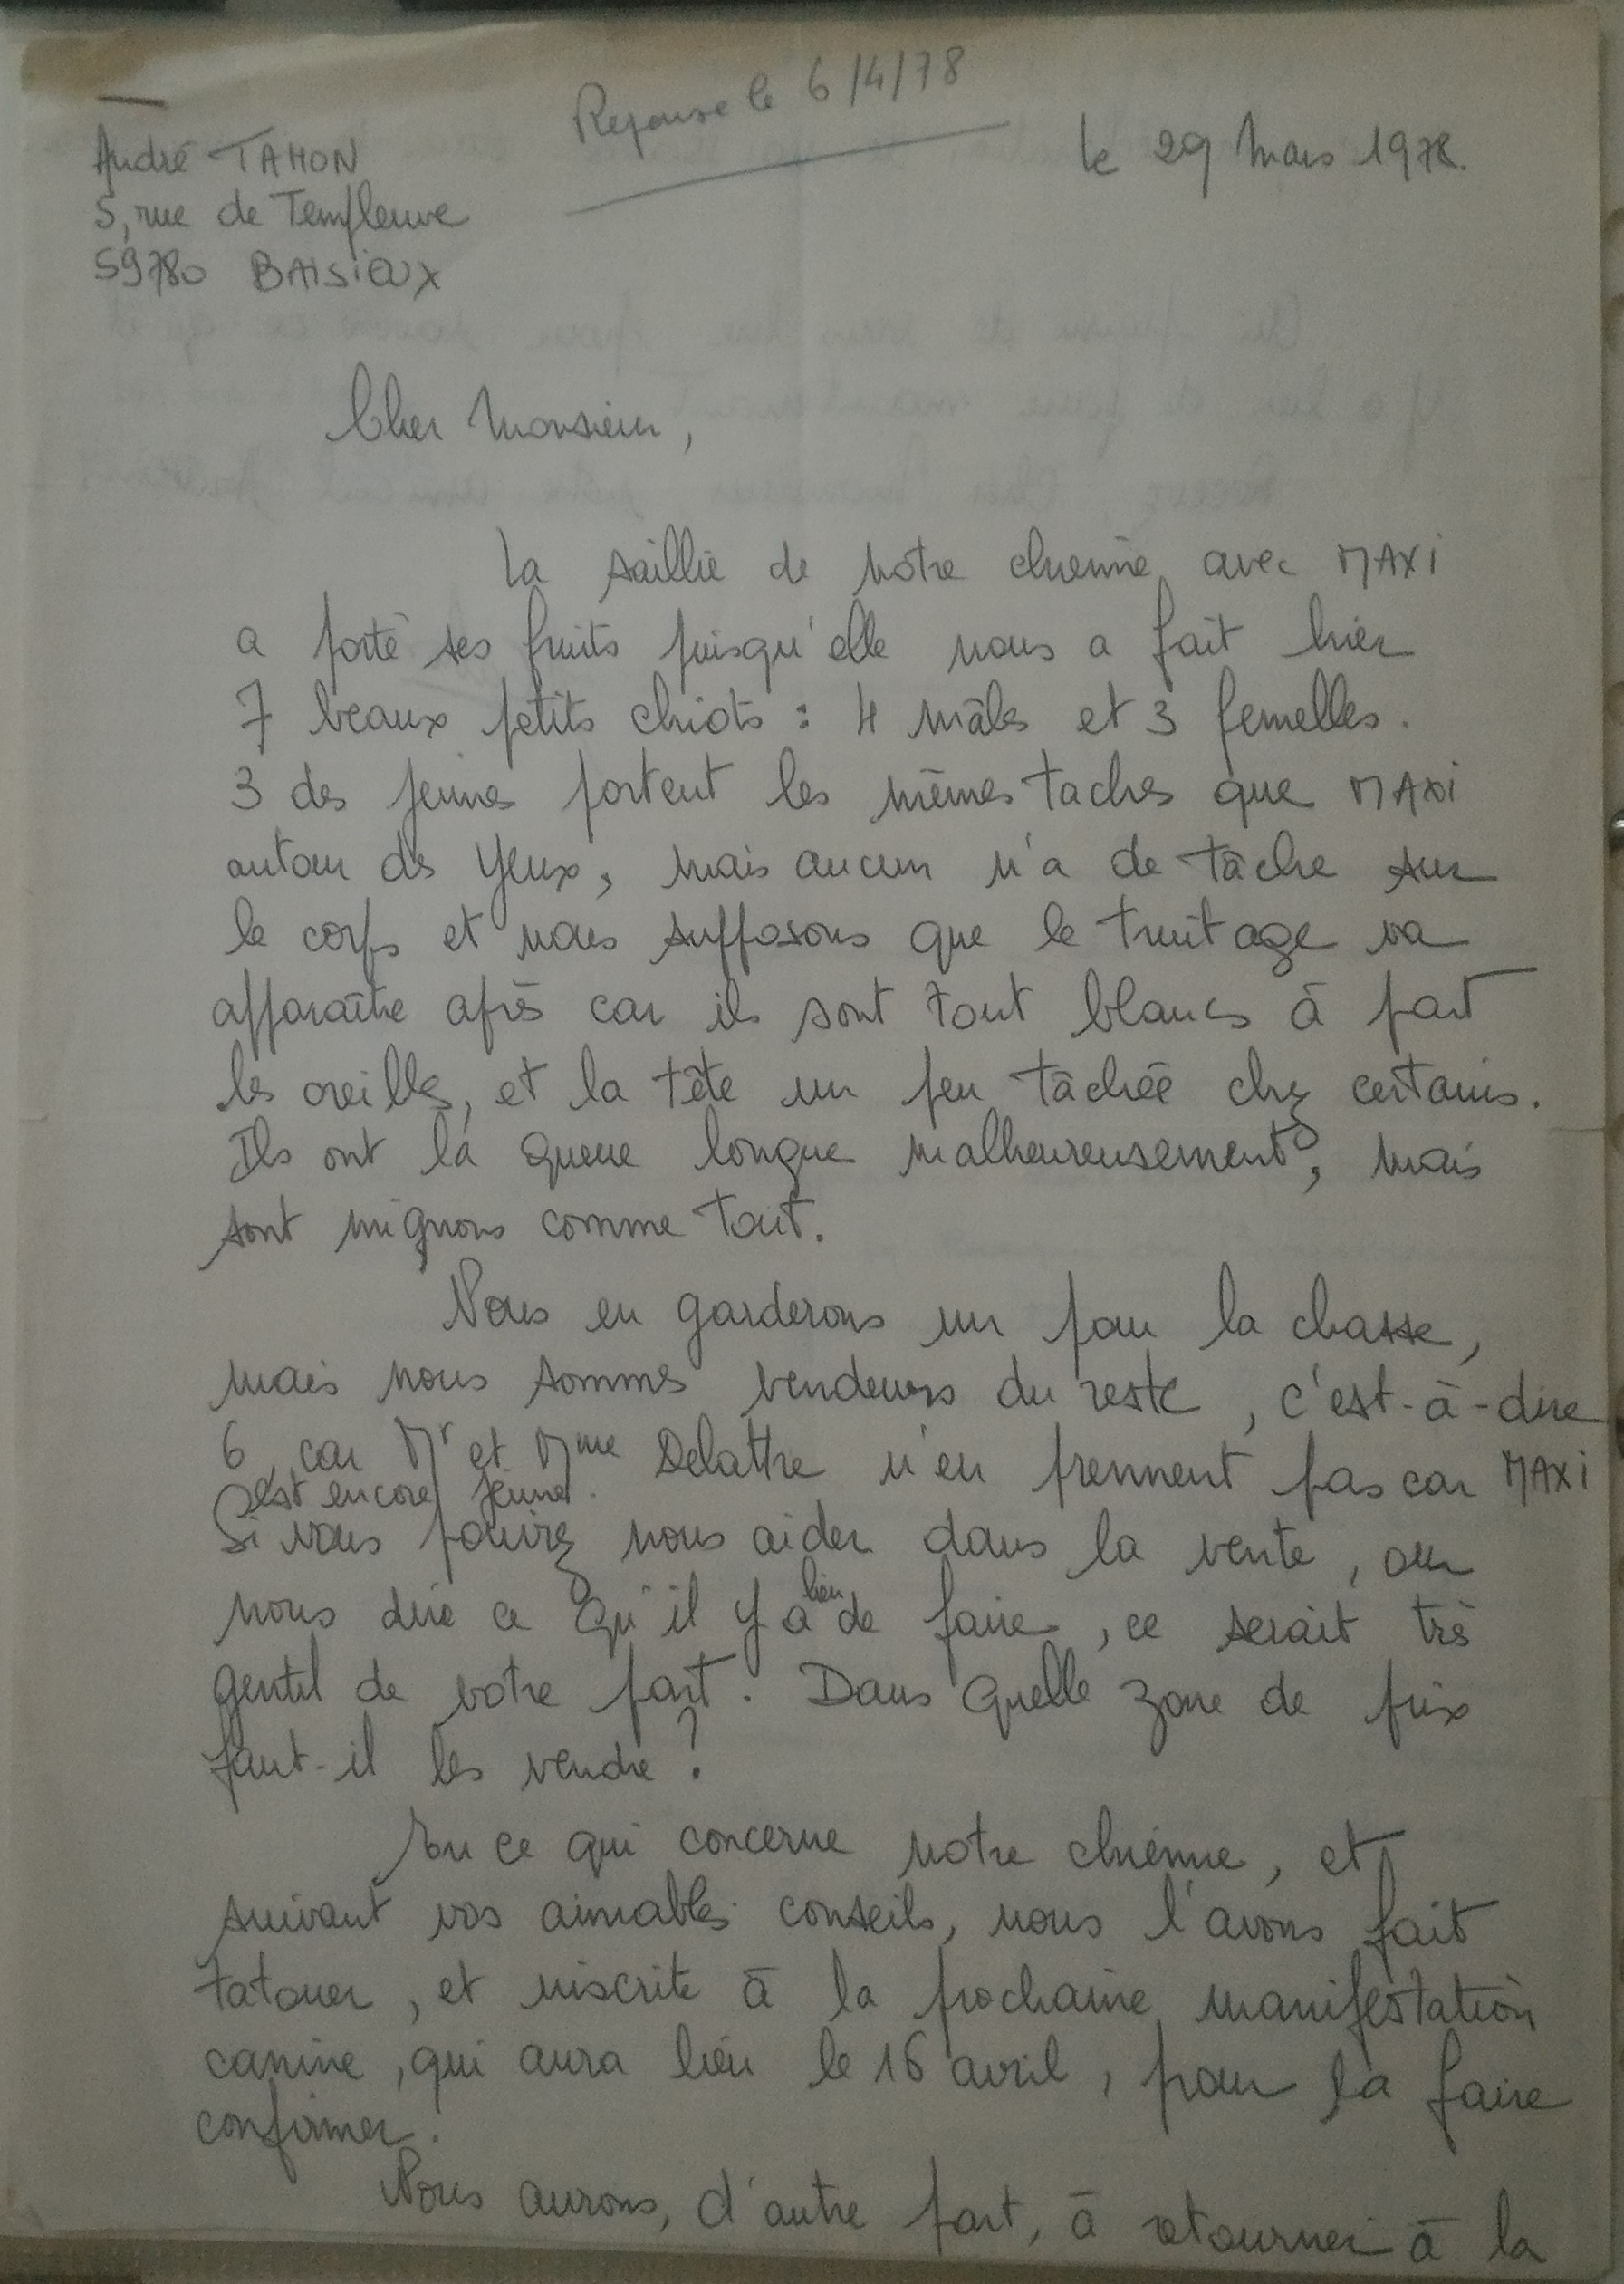 Réponse le 6/4/78
André TAHON
5, rue de Templeuve
59780 BAISIEUX
le 29 Mars 1978.
Cher Monsieur,
La saillie de notre chienne avec MAXI
a porté ses fruits puisqu'elle nous a fait hier
7 beaux petits chiots : 4 mâles et 3 femelles.
3 des jeunes portent les mêmes taches que MAXI
autour des yeux, mais aucun n'a de tâche sur
le corps et nous supposons que le truitage va
apparaître après car ils sont tout blancs à part
les oreilles, et la tête un peu tâchée chez certains.
Ils ont la queue longue malheureusement, mais
sont mignons comme tout.
Nous en garderons un pour la chasse,
mais nous sommes vendeurs du reste, c'est-à-dire
6, car Mr et Mme Delattre n'en prennent pas car MAXI
est encore jeune.
Si vous pouvez nous aider dans la vente, ou
nous dire ce qu'il y a lieu de faire, ce serait très
gentil de votre part. Dans quelle zone de prix
faut-il les vendre ?
En ce qui concerne notre chienne, et
suivant vos aimables conseils, nous l'avons fait
tatouer, et inscrite à la prochaine manifestation
canine, qui aura lieu le 16 avril, pour la faire
confirmer.
Nous aurons, d'autre part, à retourner à la